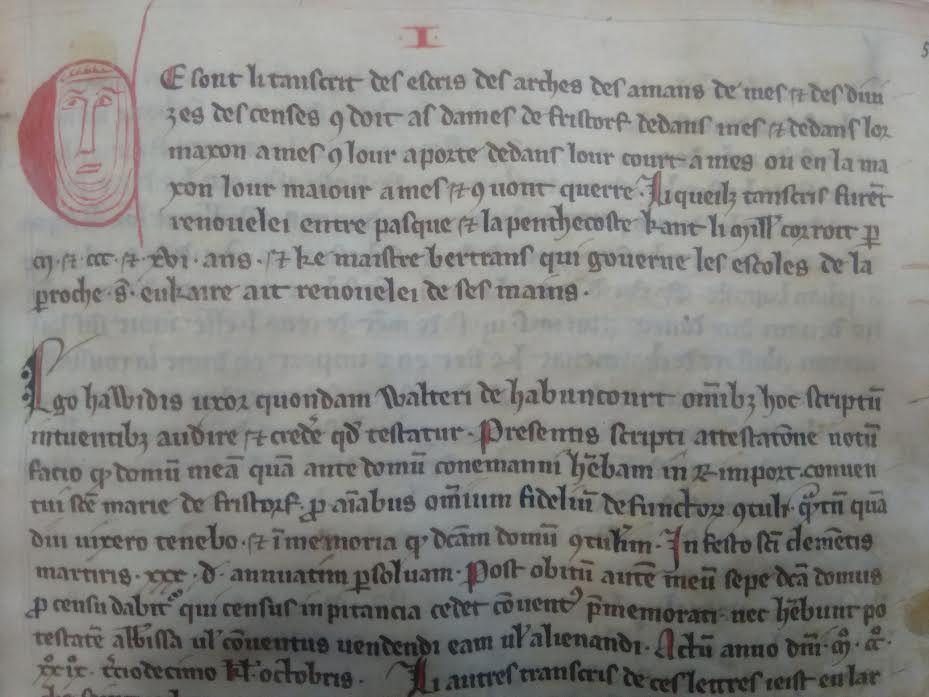 ·I·
5
Ce sont li tanscrit des escris des arches des amans de mes ⁊ des diui
zes des censes ꝯ doit as dames de fristorf dedans mes ⁊ dedans lor
maxon a mes ꝯ lour aporte dedans lour court a mes ou en la ma
xon lour maiour a mes ⁊ ꝯ uont querre. Li queilz tanscris furēt
renouelei entre pasque ⁊ la penthecoste kant li mill' corroit ꝑ
m̊·⁊·ccc·⁊·xvi·ans·⁊ ke maistre bertrans qui gouerne les escoles de la
ꝑroche·s̄·eukaire ait renouelei de ses mains·
Ego hawidis uxor quondam Walteri de habuncourt om̄ibꝫ hoc scriptū
intuentibꝫ audire ⁊ credẽ qd̄ testatur. Presentis scripti attestatōne notū
facio ꝙ domū meā quā ante domū conemanni hēbam in import. conuen
tui scē marie de fristorf. ꝓ aīabus om̄ium fideliū defunctoꝝ ꝯtuli. qᵃtū quā
diu uixero tenebo·⁊ ī memoria ꝙ dc̄am domū ꝯtulīm. In festo scī clemētis
martiris·xxx·d·annuatim ꝑsoluam. Post obitū autē meū sepe dc̄a domus
ꝓ censu dabit᷑ qui census in pitancia cedet cōuent᷒ p̄memorati. nec hēbunt po
testatē abb̄issa ul' cōuentus uendendi eam ul' alienandi. Actū anno dnī·m̊·cc̊·
xxix̊· t̄ciodecimo kl' octobris. Li autres transcris de ces lettres ieist en lar